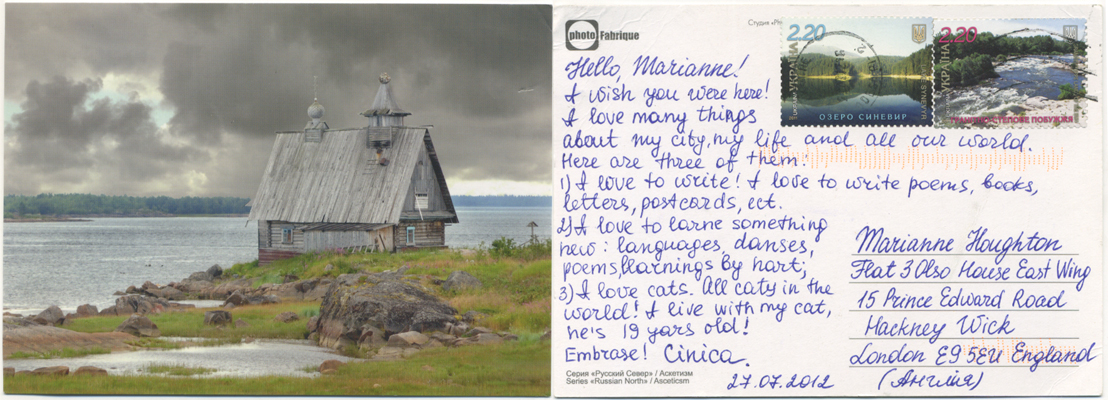 photo Fabrique
2.20
УКРАЇНА
ОЗЕРО СИНЕВИР
2.20
УКРАЇНА
Hello, Marianne!
I wish you were here!
I love many things
about my city, my life and all our world.
Here are three of them:
1) I love to write! I love to write poems, books,
letters, postcards, ect.
2) I love to larne something
new: languages, danses,
poems, learnings by hart;
3) I love cats. All caty in the
world! I live with my cat,
he's 19 yars old!
Embrase! Cinica.
27.07.2012
Marianne Houghton
Flat 3 Olso House East Wing
15 Prince Edward Road
Hackney Wick
London E9 5EU England
(Англия)
Серия «Русский Север» / Аскетизм
Series «Russian North» / Asceticsm